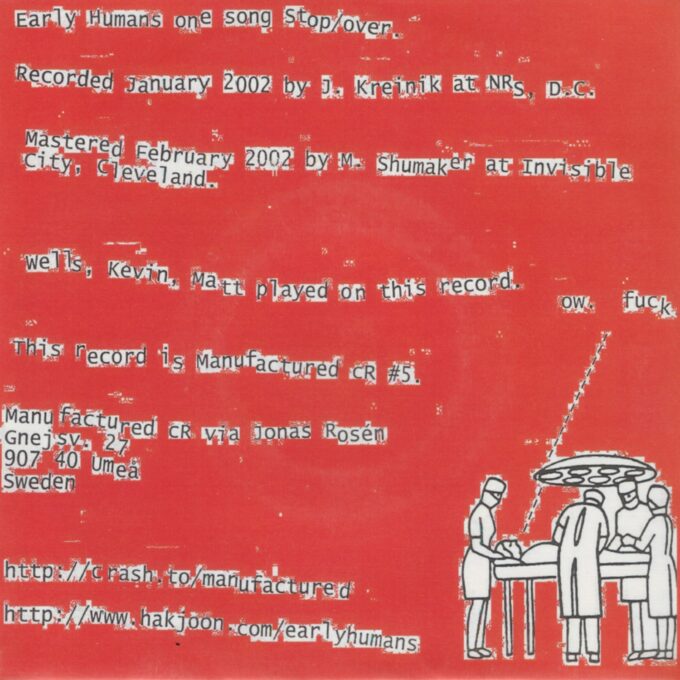 Early Humans one song Stop/over.
Recorded January 2002 by J. Kreinik at NRS, D.C.
Mastered February 2002 by M. Shumaker at Invisible
City, Cleveland.
Wells, Kevin, Matt played on this record.
ow. fuck.
This record is Manufactured CR #5.
Manufactured CR via Jonas Rosén
Gnejsv. 27
907 40 Umeå
Sweden
http://crash.to/manufactured
http://www.hakjoon.com/earlyhumans